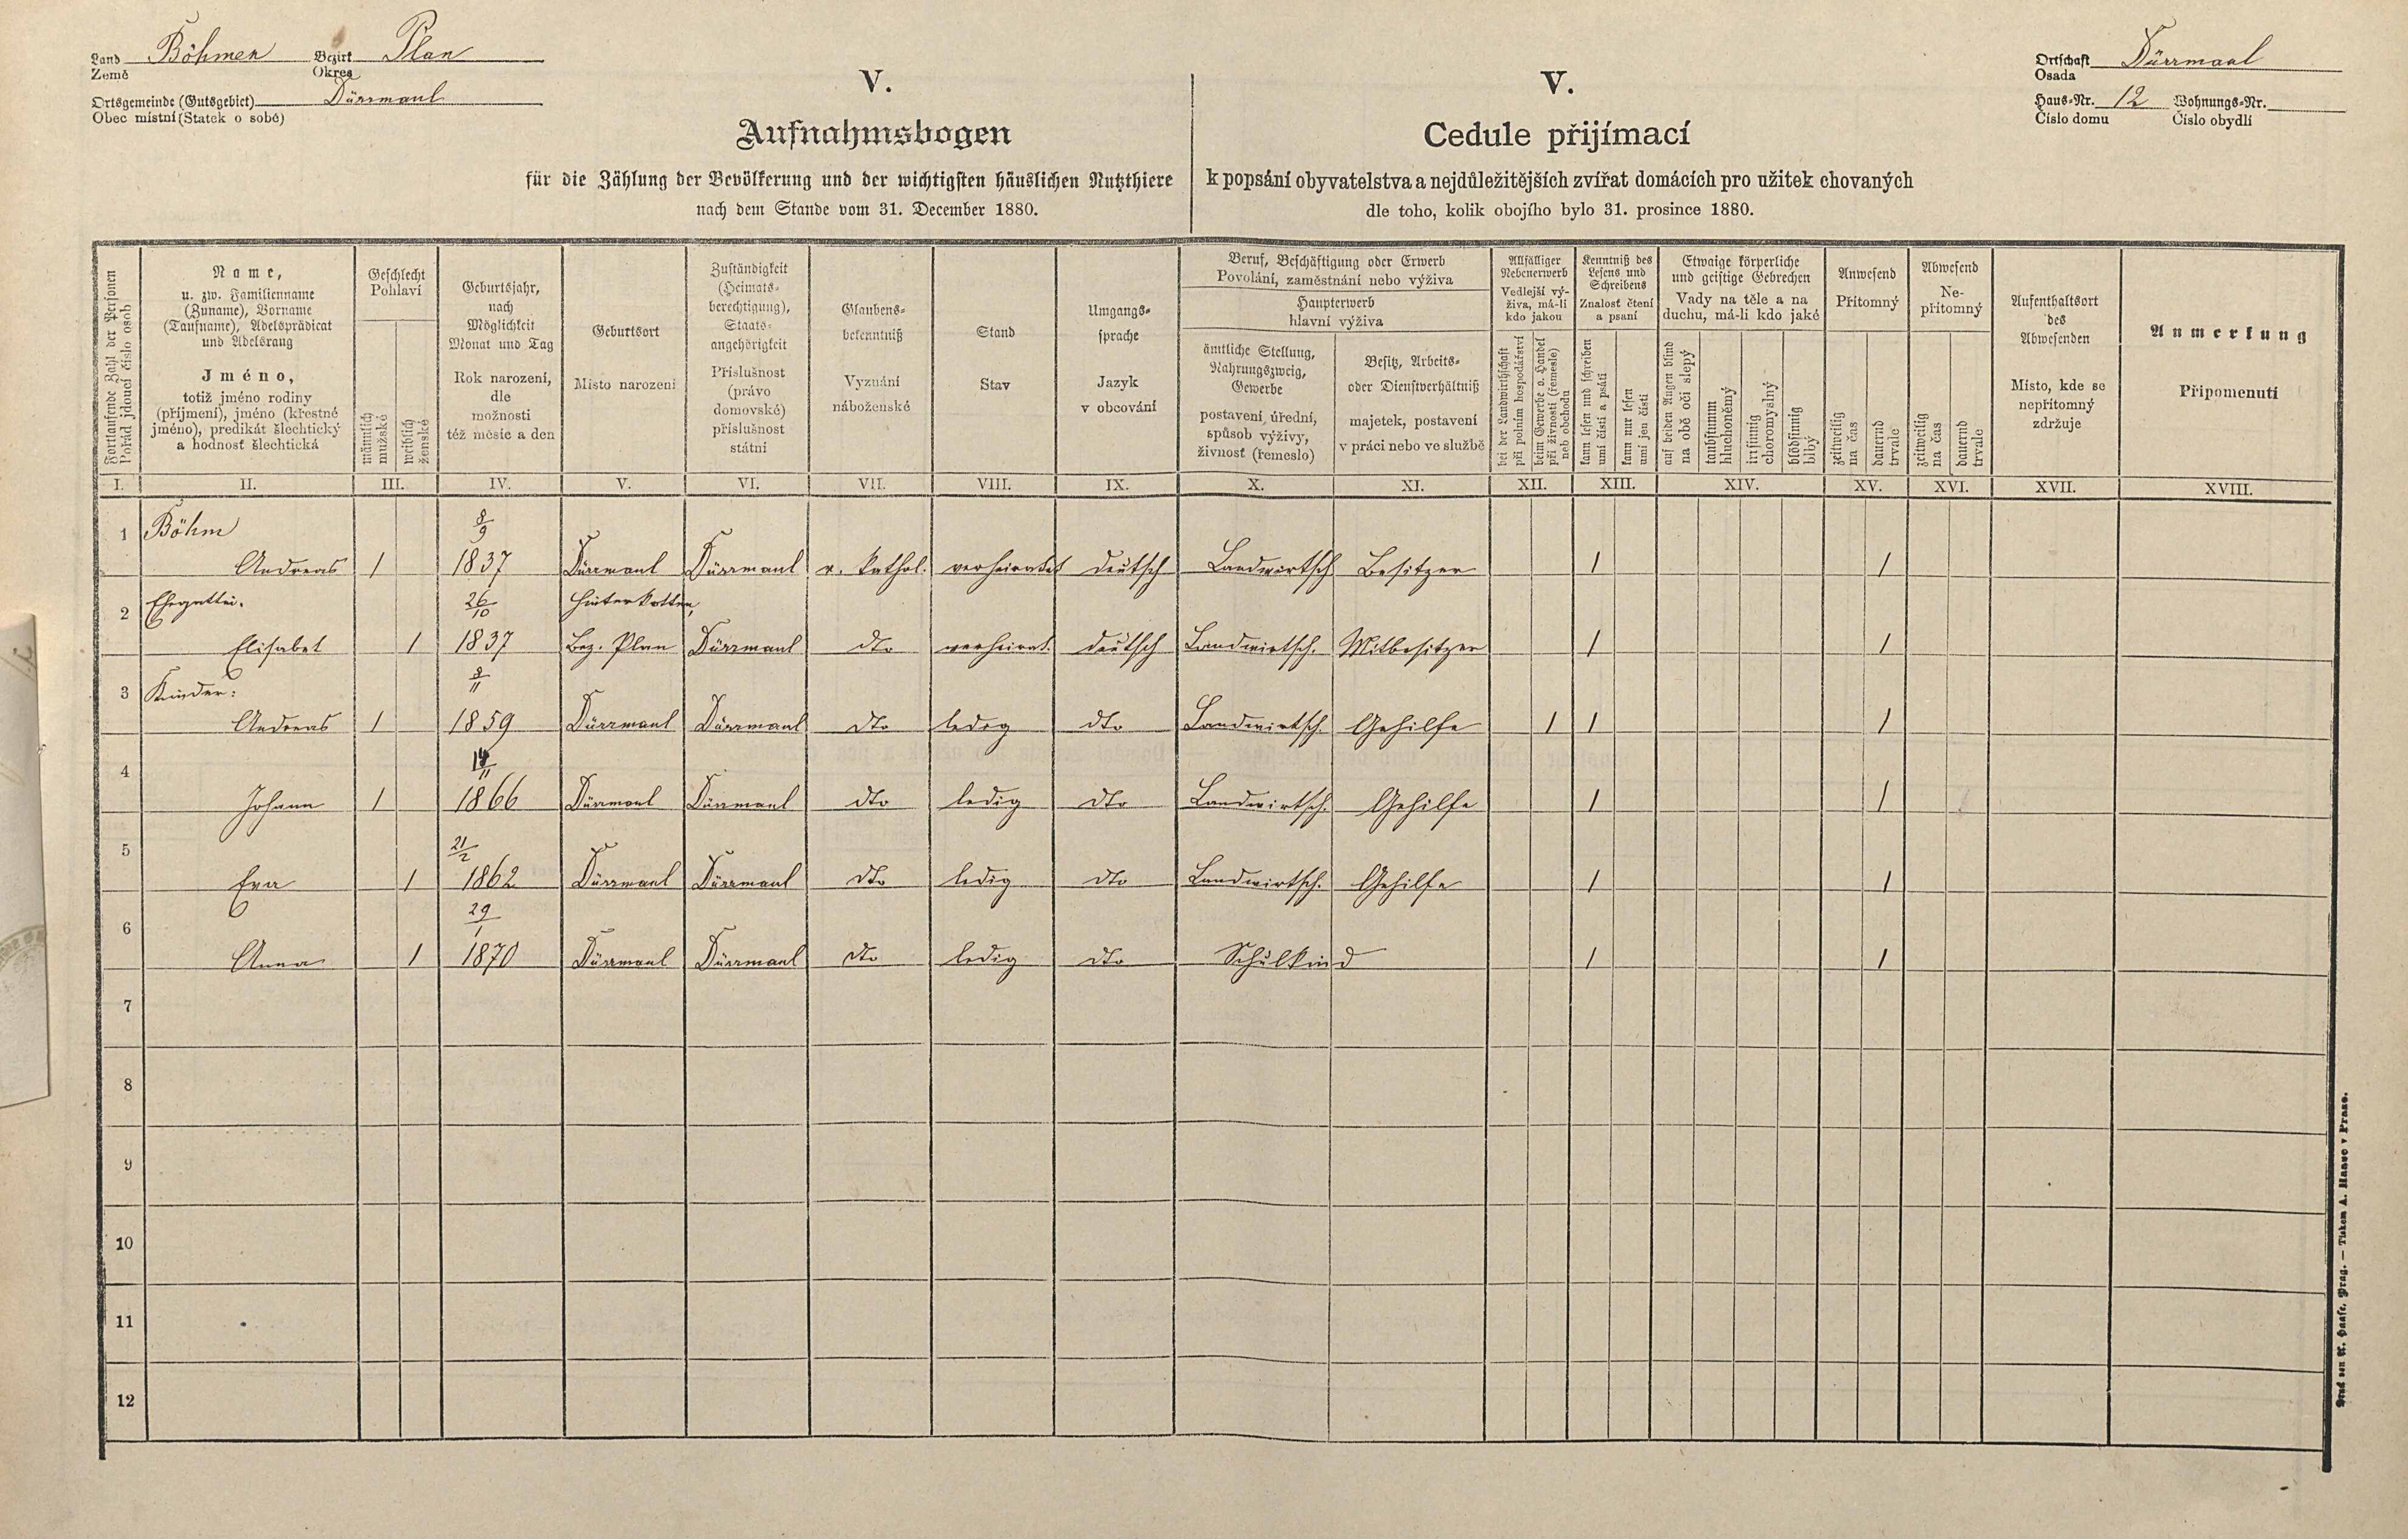 Land Böhmen Bezirk Plan
Země Okres
Ortsgemeinde (Gutsgebiet) Dürrmaul
Obec místní (Statek o sobě)
V.
Aufnahmsbogen
für die Zählung der Bevölkerung und der wichtigsten häuslichen Nutzthiere
nach dem Stande vom 31. December 1880.
V.
Cedule přijímací
k popsání obyvatelstva a nejdůležitějších zvířat domácích pro užitek chovaných
dle toho, kolik obojího bylo 31. prosince 1880.
Ortschaft Dürrmaul
Osada
Haus-Nr. 12 Wohnungs-Nr.
Číslo domu Číslo obydlí
Fortlaufende Zahl der Personen
Pořád jdoucí číslo osob
Name,
u. zw. Familienname
(Zuname), Vorname
(Taufname), Adelsprädicat
und Adelsrang
Jméno,
totiž jméno rodiny
(příjmení), jméno (křestné
jméno), predikát šlechtický
a hodnosť šlechtická
Geschlecht
Pohlaví
männlich
mužské
weiblich
ženské
Geburtsjahr,
nach
Möglichkeit
Monat und Tag
Rok narození,
dle
možnosti
též měsíc a den
Geburtsort
Místo narození
Zuständigkeit
(Heimats-
berechtigung),
Staats-
angehörigkeit
Příslušnost
(právo
domovské)
příslušnost
státní
Glaubens-
bekenntniß
Vyznání
náboženské
Stand
Stav
Umgangs-
sprache
Jazyk
v obcování
Beruf, Beschäftigung oder Erwerb
Povolání, zaměstnání nebo výživa
Haupterwerb
hlavní výživa
ämtliche Stellung,
Nahrungszweig,
Gewerbe
postavení úřední,
způsob výživy,
živnosť (řemeslo)
Besitz, Arbeits-
oder Dienstverhältniß
majetek, postavení
v práci nebo ve službě
Allfälliger
Nebenerwerb
Vedlejší vý-
živa, má-li
kdo jakou
bei der Landwirthschaft
při polním hospodářství
beim Gewerbe o. Handel
při živnosti (řemesle)
neb obchodu
Kenntniß des
Lesens und
Schreibens
Znalosť čtení
a psaní
kann lesen und schreiben
umí čísti a psáti
kann nur lesen
umí jen čísti
Etwaige körperliche
und geistige Gebrechen
Vady na těle a na
duchu, má-li kdo jaké
auf beiden Augen blind
na obě oči slepý
taubstumm
hluchoněmý
irrsinnig
choromyslný
blödsinnig
blbý
Anwesend
Přítomný
zeitweilig
na čas
dauernd
trvale
Abwesend
Ne-
přítomný
zeitweilig
na čas
dauernd
trvale
Aufenthaltsort
des
Abwesenden
Místo, kde se
nepřítomný
zdržuje
Anmerkung
Připomenutí
I. II. III. IV. V. VI. VII. VIII. IX. X. XI. XII. XIII. XIV. XV. XVI. XVII. XVIII.
1 Böhm 8/9
Andreas 1 1837 Dürrmaul Dürrmaul r. kathol. verheiratet deutsch Landwirtsch Besitzer 1 1
2 Ehegattin. 26/10 Hinterkotten,
Elisabet 1 1837 Bez. Plan Dürrmaul dto verheirat. deutsch Landwirtsch. Mitbesitzer 1 1
3 Kinder: 8/11
Andreas 1 1859 Dürrmaul Dürrmaul dto ledig dto Landwirtsch. Gehilfe 1 1 1
4
Johann 1 1866 Dürrmaul Dürrmaul dto ledig dto Landwirtsch. Gehilfe 1 1
5 21/2
Eva 1 1862 Dürrmaul Dürrmaul dto ledig dto Landwirtsch. Gehilfe 1 1
6 29/1
Anna 1 1870 Dürrmaul Dürrmaul dto ledig dto Schulkind 1 1
7
8
9
10
11
12
Druck von A. Haase, Prag. — Tiskem A. Haase v Praze.